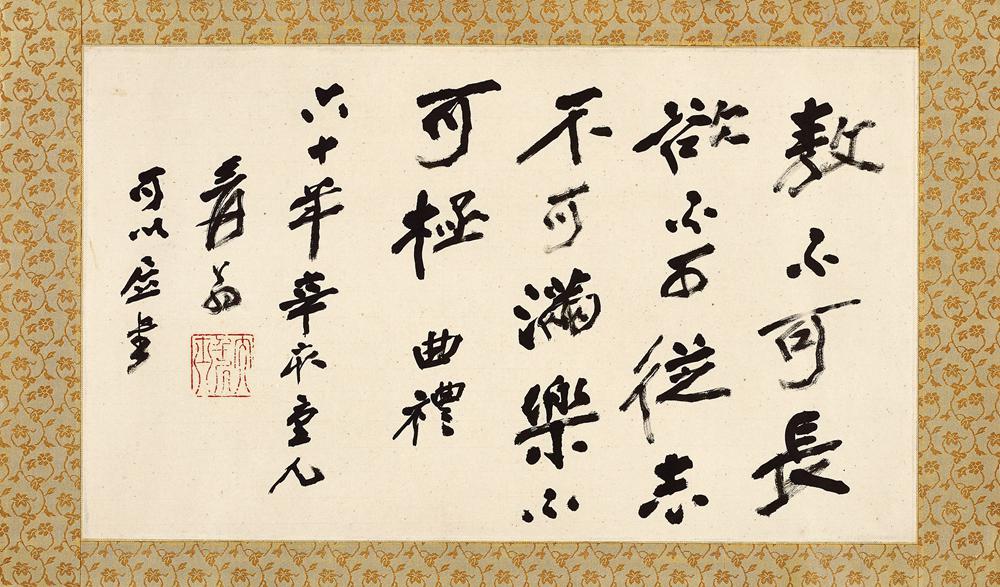 敖不可長
欲不可從志
不可滿樂不
可極 曲禮
六十年辛亥重九
爰翁
可以居書